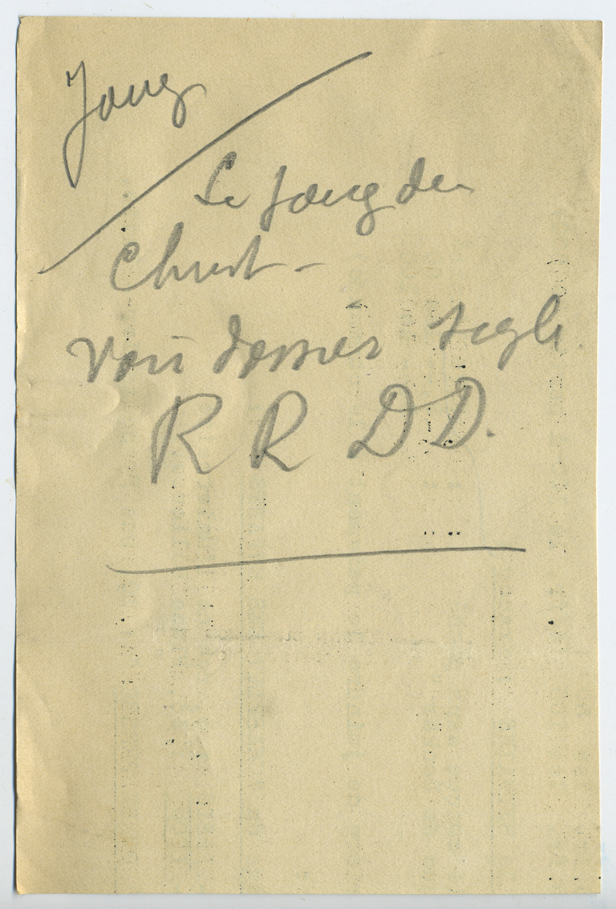 Joug
Le joug du
Christ -
voir dossier sigle
R R D D.